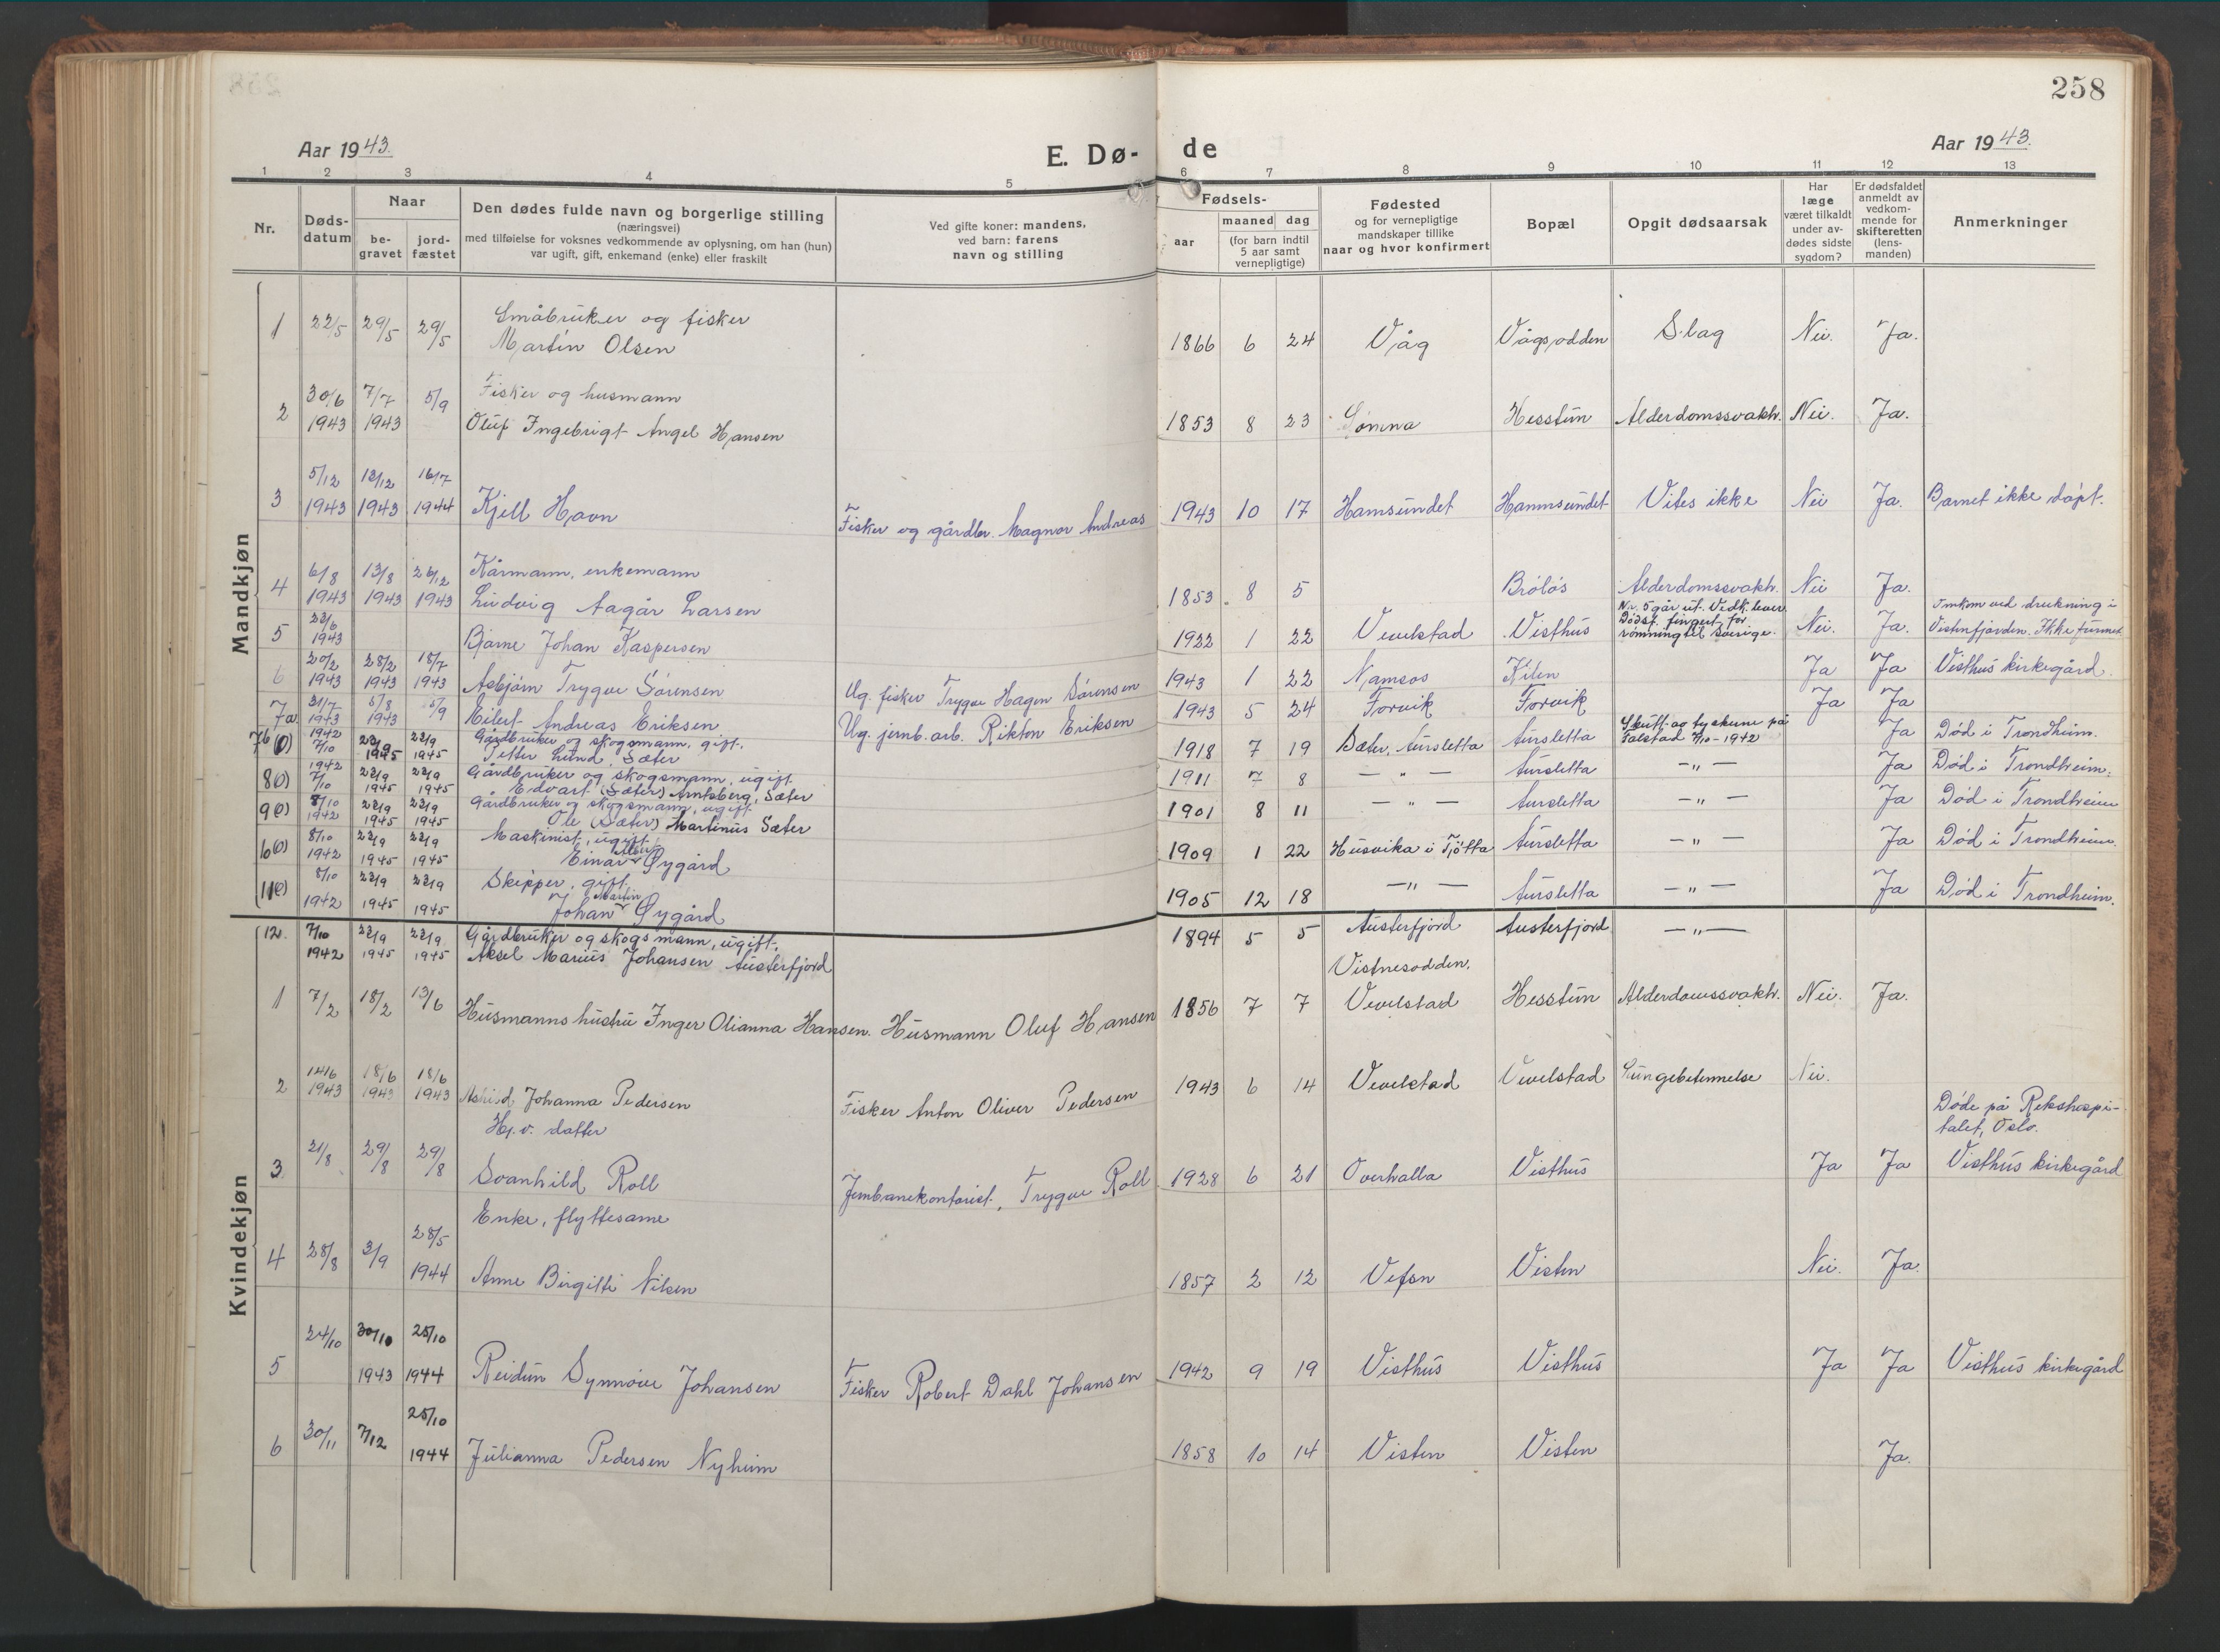 258
Aar 1943.
E. Dø-
de
Aar 1943.
1 2 3 4 5 6 7 8 9 10 11 12 13
Nr.
Døds-
datum
Naar
be-
gravet
jord-
fæstet
Den dødes fulde navn og borgerlige stilling
(næringsvei)
med tilføielse for voksnes vedkommende av oplysning, om han (hun)
var ugift, gift, enkemand (enke) eller fraskilt
Ved gifte koner: mandens,
ved barn: farens
navn og stilling
Fødsels-
aar
maaned dag
(for barn indtil
5 aar samt
vernepligtige)
Fødested
og for vernepligtige
mandskaper tillike
naar og hvor konfirmert
Bopæl
Opgit dødsaarsak
Har
læge
været tilkaldt
under av-
dødes sidste
sygdom?
Er dødsfaldet
anmeldt av
vedkom-
mende for
skifteretten
(lens-
manden)
Anmerkninger
Mandkjøn
1 22/5 29/5 29/5 Småbruker og fisker
Martin Olsen 1866 6 24 Våg Vågsodden Slag Nei. Ja.
2 30/6 7/7 5/9 Fisker og husmann
1943 1943 Oluf Ingebrigt Angel Hansen 1853 8 23 Sømna Hesstun Alderdomssvakh. Nei. Ja.
5/12 12/12 16/7
3 1943 1943 1944 Kjell Havn Fisker og gårdbr. Magnor Andreas 1943 10 17 Hamsundet Hamnsundet Vites ikke Nei Ja. Barnet ikke døpt.
6/8 13/8 26/12 Kårmann, enkemann
4 1943 1943 1943 Ludvig Aagår Larsen 1853 8 5 Brøløs Alderdomssvakh. Nei Ja.
22/6 Nr. 5 går ut. Vedk. lever. Omkom ved drukning i
5 1943 Bjarne Johan Kaspersen 1922 1 22 Vevelstad Visthus Dødsf. fingert, før rømning til Sverige. Nei. Ja. Vistenfjorden. Ikke funnet
6 20/2 28/2 18/7
1943 1943 1943 Asbjørn Trygve Sørensen Ug. fisker Trygve Hagen Sørensen 1943 1 22 Namsos Kilen Ja Ja Visthus kirkegård.
7a 31/7 5/8 5/9
1943 1943 Eilert Andreas Eriksen Ug. jernb. arb. Rikton Eriksen 1943 5 24 Forvik Forvik Ja Ja
7b 1942 7/10 22/9 1945 22/9 1945 Gårdbruker og skogsmann, gift.
Petter Lund Sæter 1918 7 19 Sæter, Aursletta Aursletta Skutt av tyskerne på Falstad 7/10-1942 Ja Død i Trondheim.
8 1942 7/10 22/9 1945 22/9 1945 Gårdbruker og skogsmann, ugift.
Edvart (Sæter) Arntsberg, Sæter 1911 7 8 — " — Aursletta — " — Ja Død i Trondheim.
9 8/10 1942 22/9 1945 22/9 1945 Gårdbruker og skogsmann, ugift
Ole (Sæter) Martinus Sæter 1901 8 11 — " — Aursletta — " — Ja Død i Trondheim
10 8/10 1942 22/9 1945 22/9 1945 Maskinist, ugift.
Einar Øygård 1909 1 22 Husvika i Tjøtta Aursletta — " — Ja Død i Trondheim.
11 8/10 1942 22/9 1945 22/9 1945 Skipper, gift.
Martin
Johan Øygård 1905 12 18 — " — Aursletta — " — Ja Død i Trondheim.
12. 7/10 22/9 22/9 Gårdbruker og skogsmann, ugift.
1942 1945 1945 Aksel Marius Johansen Austerfjord 1894 5 5 Austerfjord Austerfjord — " —
Kvindekjøn
Vistnesodden,
1 7/2 18/2 13/6 Husmannshustru Inger Olianna Hansen. Husmann Oluf Hansen 1856 7 7 Vevelstad Hesstun Alderdomssvakh. Nei. Ja.
2 14/6 18/6 18/6
1943 1943 1943 Astrid Johanna Pedersen Fisker Anton Oliver Pedersen 1943 6 14 Vevelstad Vevelstad Lungebetennelse Nei.
Hj. v. datter Døde på Rikshospi-
talet, Oslo.
3 21/8 29/8 29/8 Svanhild Roll Jernbanekontorist, Trygve Roll 1928 6 21 Overhalla Visthus Ja Ja Visthus kirkegård
Enke, flyttesame
4 28/8 3/9 28/5 1944 Anne Birgitte Nilsen 1857 2 12 Vefsn Visten Nei. Ja.
24/10 30/10 25/10
5 1943 1944 Reidun Synnøve Johansen Fisker Robert Dahl Johansen 1942 9 19 Visthus Visthus Ja Ja Visthus kirkegård
25/10
6 30/11 7/12 1944 Julianna Pedersen Nyheim 1858 10 14 Visten Visten Ja.